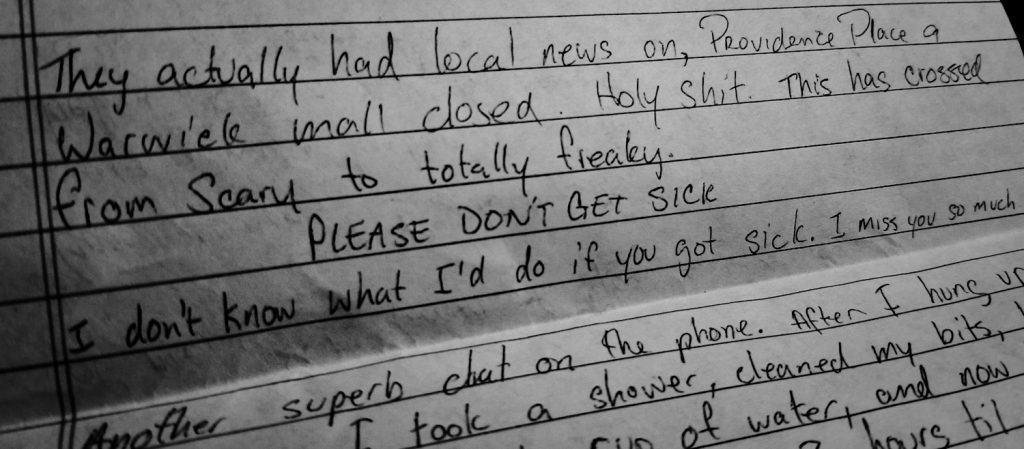 They actually had local news on, Providence Place a
Warwick mall closed. Holy shit. This has crossed
from Scary to totally freaky.
PLEASE DON'T GET SICK
I don't know what I'd do if you got sick. I miss you so much
Another superb chat on the phone. After I hung up
I took a shower, cleaned my bits,
of water, and now
hours til